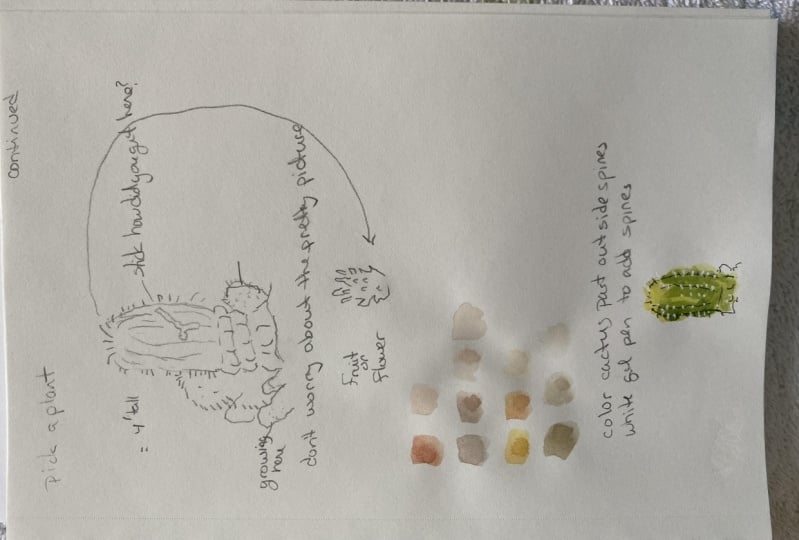 continued
pick a plant
= 4' tall
stick how did you get here?
growing
here
don't worry about the pretty picture
Fruit
or
Flower
color cactus past outside spines
white gel pen to add spines